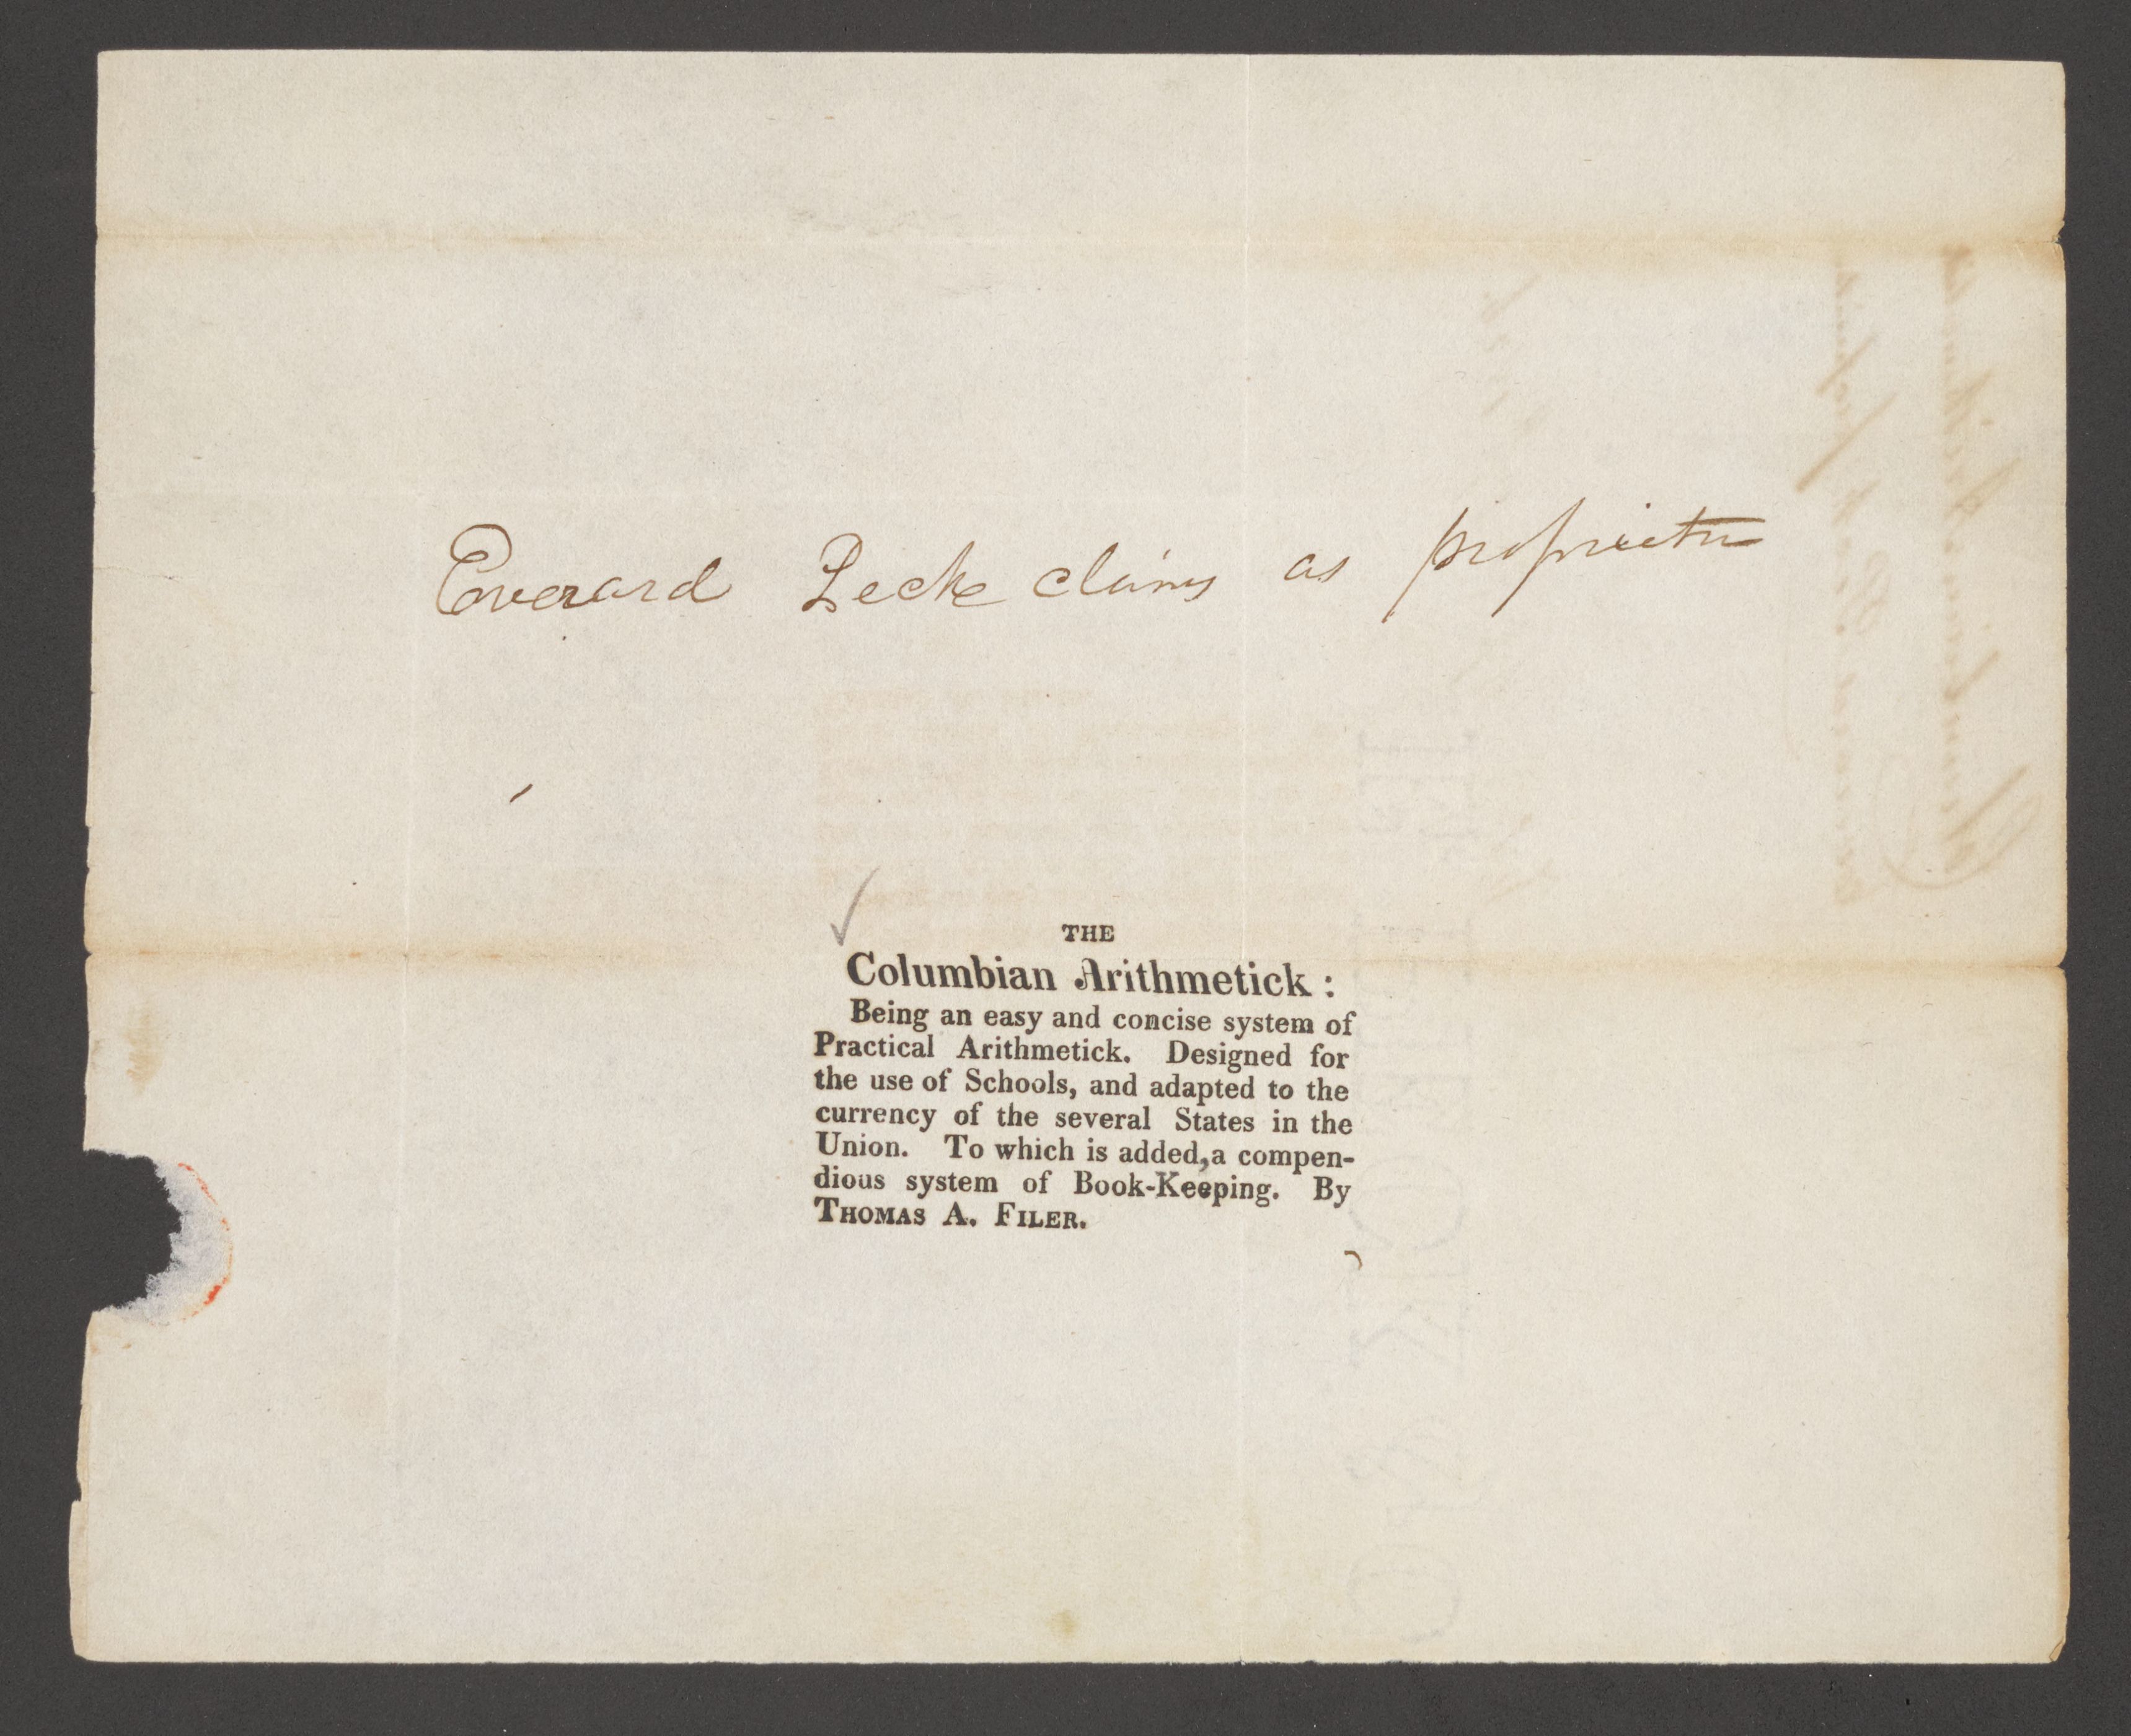 Everard Peck claims as proprietor
THE
Columbian Arithmetick:
Being an easy and concise system of
Practical Arithmetick. Designed for
the use of Schools, and adapted to the
currency of the several States in the
Union. To which is added,a compen-
dious system of Book-Keeping. By
THOMAS A. FILER.